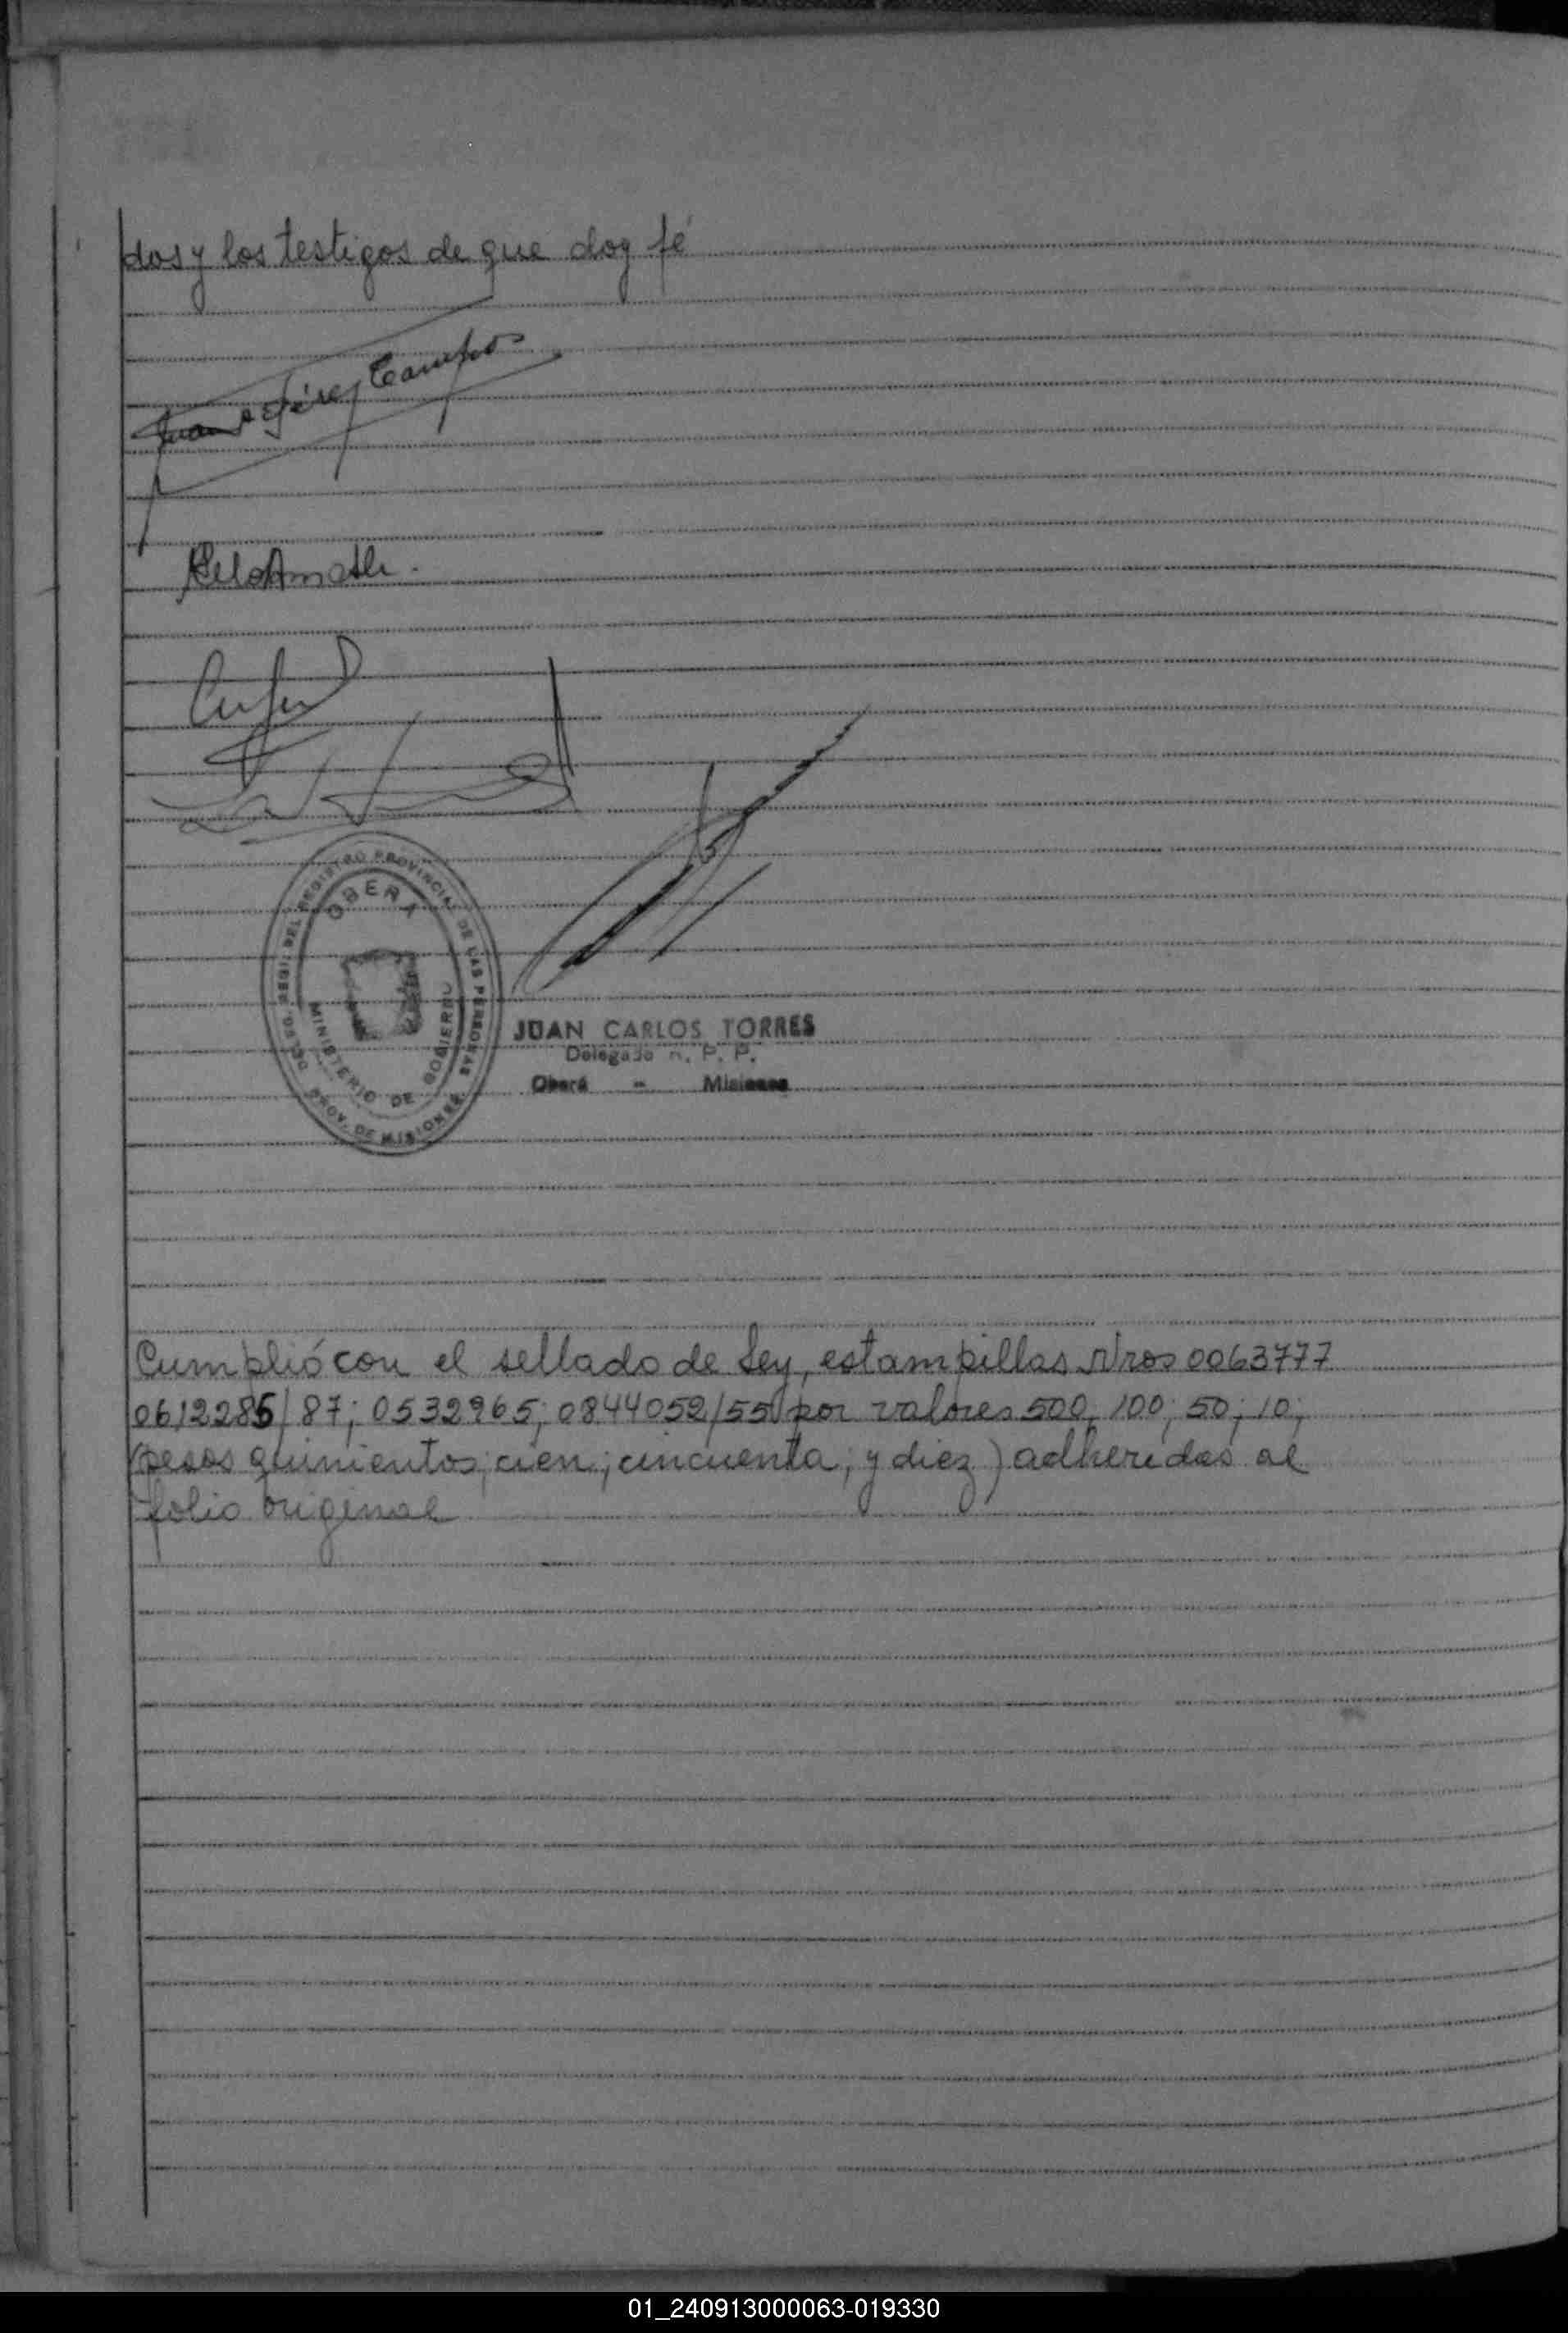 dos y los testigos de que doy fé
Juan Pérez Campos
DELEG. DEL REGISTRO PROVINCIAL DE LAS PERSONAS
OBERA
MINISTERIO DE GOBIERNO
PROV. DE MISIONES
JUAN CARLOS TORRES
Delegado R. P. P.
Oberá - Misiones
Cumplió con el sellado de Ley, estampillas Nros 0063777
0612285/87; 0532965; 0844052/55 por valores 500, 100; 50; 10;
(pesos quinientos; cien; cincuenta; y diez) adheridas al
folio original
01_240913000063-019330